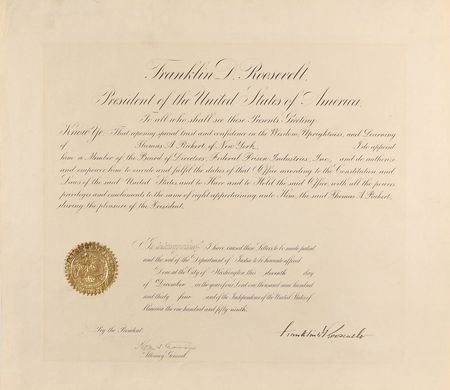 Franklin D. Roosevelt,
President of the United States of America.
To all who shall see these Presents, Greeting:
Know Ye, That reposing special trust and confidence in the Wisdom, Uprightness, and Learning
of Thomas A. Rickert, of New York, I do appoint
him a Member of the Board of Directors, Federal Prison Industries, Inc., and do authorize
and empower him to execute and fulfil the duties of that Office according to the Constitution and
Laws of the said United States and to Have and to Hold the said Office, with all the powers
privileges and emoluments to the same of right appertaining unto Him, the said Thomas A. Rickert,
during the pleasure of the President.
In testimony I have caused these Letters to be made patent
and the seal of the Department of Justice to be hereunto affixed.
Done at the City of Washington this eleventh day
of December in the year of our Lord one thousand nine hundred
and thirty four and of the Independence of the United States of
America the one hundred and fifty ninth.
By the President:
Franklin D Roosevelt
Attorney General.